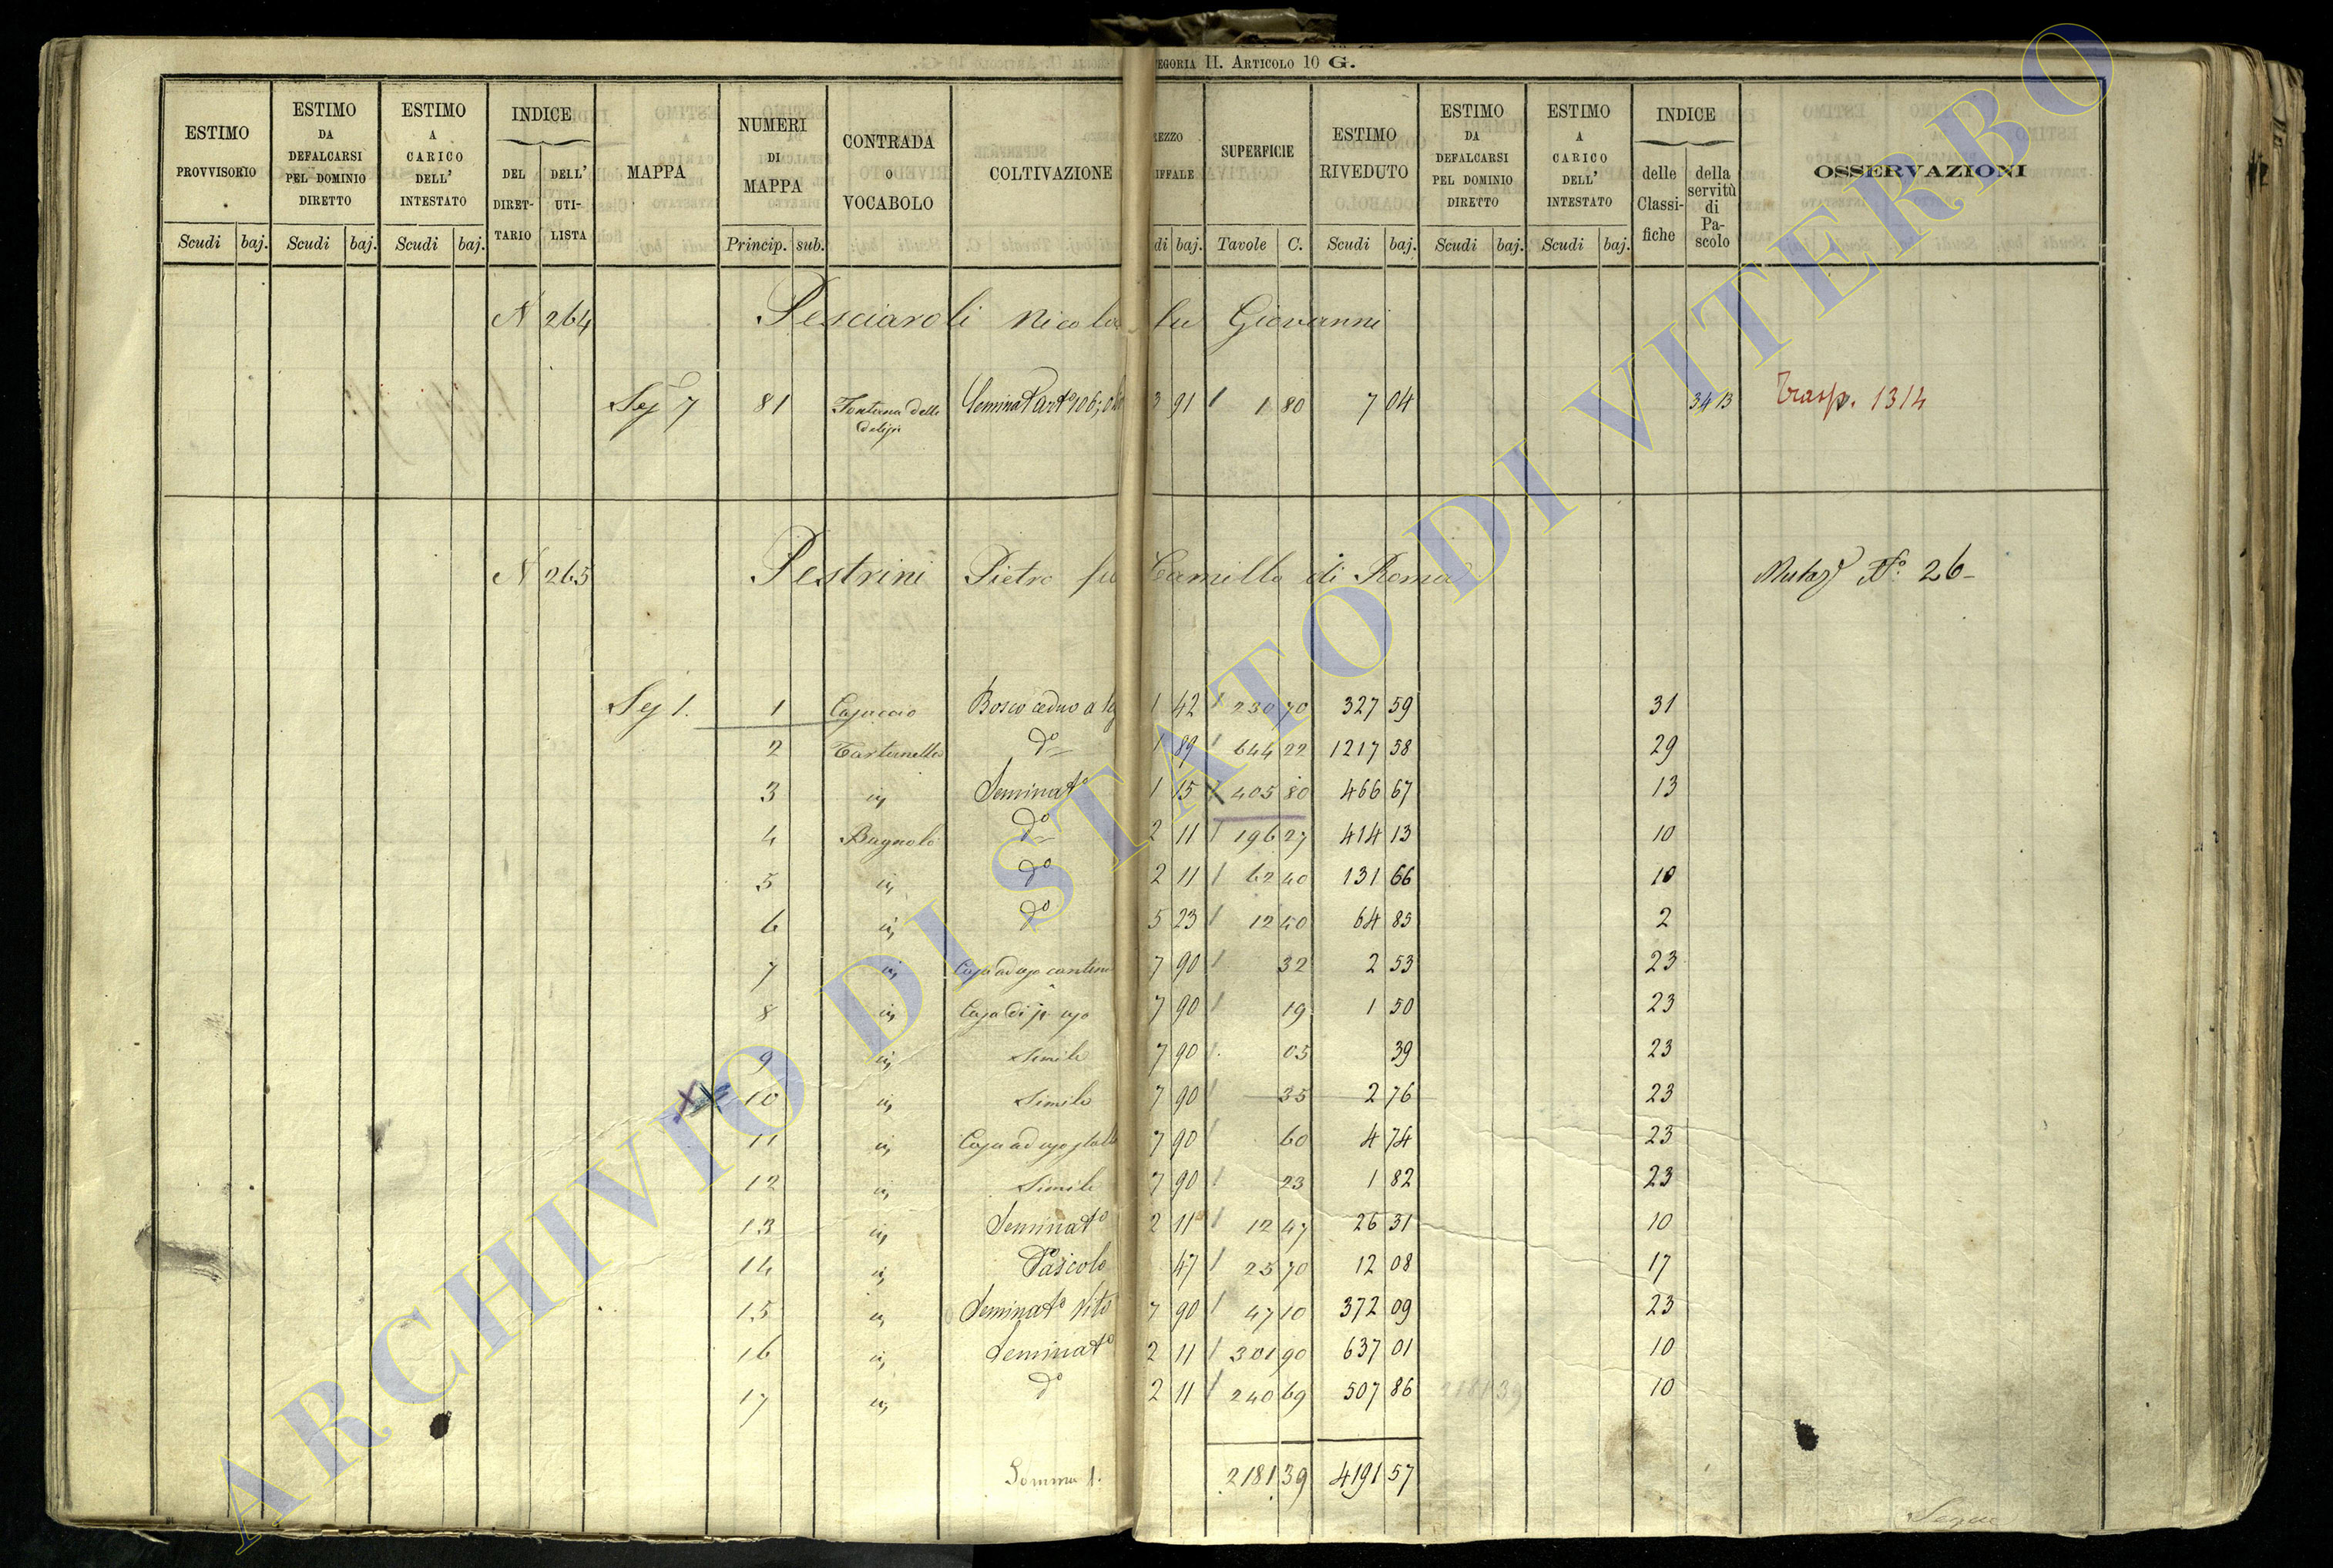 CATEGORIA II. ARTICOLO 10 G.
ESTIMO PROVVISORIO | ESTIMO DA DEFALCARSI PEL DOMINIO DIRETTO | ESTIMO A CARICO DELL' INTESTATO | INDICE DEL DIRETTARIO | DELL' UTILISTA | MAPPA | NUMERI DI MAPPA | CONTRADA O VOCABOLO | COLTIVAZIONE | REZZO IFFALE | SUPERFICIE | ESTIMO RIVEDUTO | ESTIMO DA DEFALCARSI PEL DOMINIO DIRETTO | ESTIMO A CARICO DELL' INTESTATO | INDICE delle Classifiche | della servitù di Pascolo | OSSERVAZIONI
Scudi | baj. | Scudi | baj. | Scudi | baj. | Princip. | sub. | di | baj. | Tavole | C. | Scudi | baj. | Scudi | baj. | Scudi | baj.
N 264 Pesciaroli Nicola fu Giovanni
Sez 7 | 81 | Fontana delle | Seminat | 3 | 91 | 1 | 80 | 7 | 04 | 34 13 | Trasp. 1314
N 265 Pestrini Pietro fu Camillo di Roma | N.º 26
Sez 1. | 1 | Bosco ceduo a | 1 | 42 | 230 | 70 | 327 | 59 | 31
2 | dº | 1 | 89 | 644 | 22 | 1217 | 58 | 29
3 | Seminatº | 1 | 15 | 405 | 80 | 466 | 67 | 13
4 | Bagnolo | dº | 2 | 11 | 196 | 27 | 414 | 13 | 10
5 | dº | 2 | 11 | 62 | 40 | 131 | 66 | 10
6 | dº | 5 | 23 | 12 | 40 | 64 | 85 | 2
7 | Casa ad uso | 7 | 90 | 32 | 2 | 53 | 23
8 | Casa di pº uso | 7 | 90 | 19 | 1 | 50 | 23
9 | Simile | 7 | 90 | 05 | 39 | 23
10 | Simile | 7 | 90 | 35 | 2 | 76 | 23
11 | Casa ad uso stalla | 7 | 90 | 60 | 4 | 74 | 23
12 | Simile | 7 | 90 | 23 | 1 | 82 | 23
13 | Seminatº | 2 | 11 | 12 | 47 | 26 | 31 | 10
14 | Pascolo | 47 | 25 | 70 | 12 | 08 | 17
15 | Seminatº Vitº | 7 | 90 | 47 | 10 | 372 | 09 | 23
16 | Seminatº | 2 | 11 | 301 | 90 | 637 | 01 | 10
17 | dº | 2 | 11 | 240 | 69 | 507 | 86 | 2181 39 | 10
Somma 1. | 2181 | 39 | 4191 | 57
Segue
ARCHIVIO DI STATO DI VITERBO